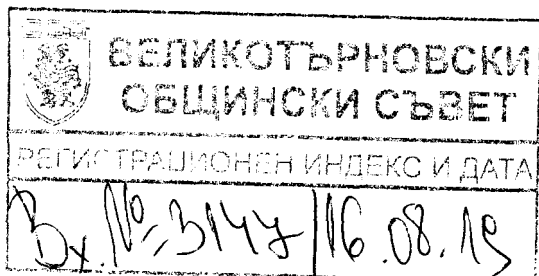 ВЕЛИКОТЪРНОВСКИ
ОБЩИНСКИ СЪВЕТ
РЕГИСТРАЦИОНЕН ИНДЕКС И ДАТА
Вх. №=3147/16.08.19